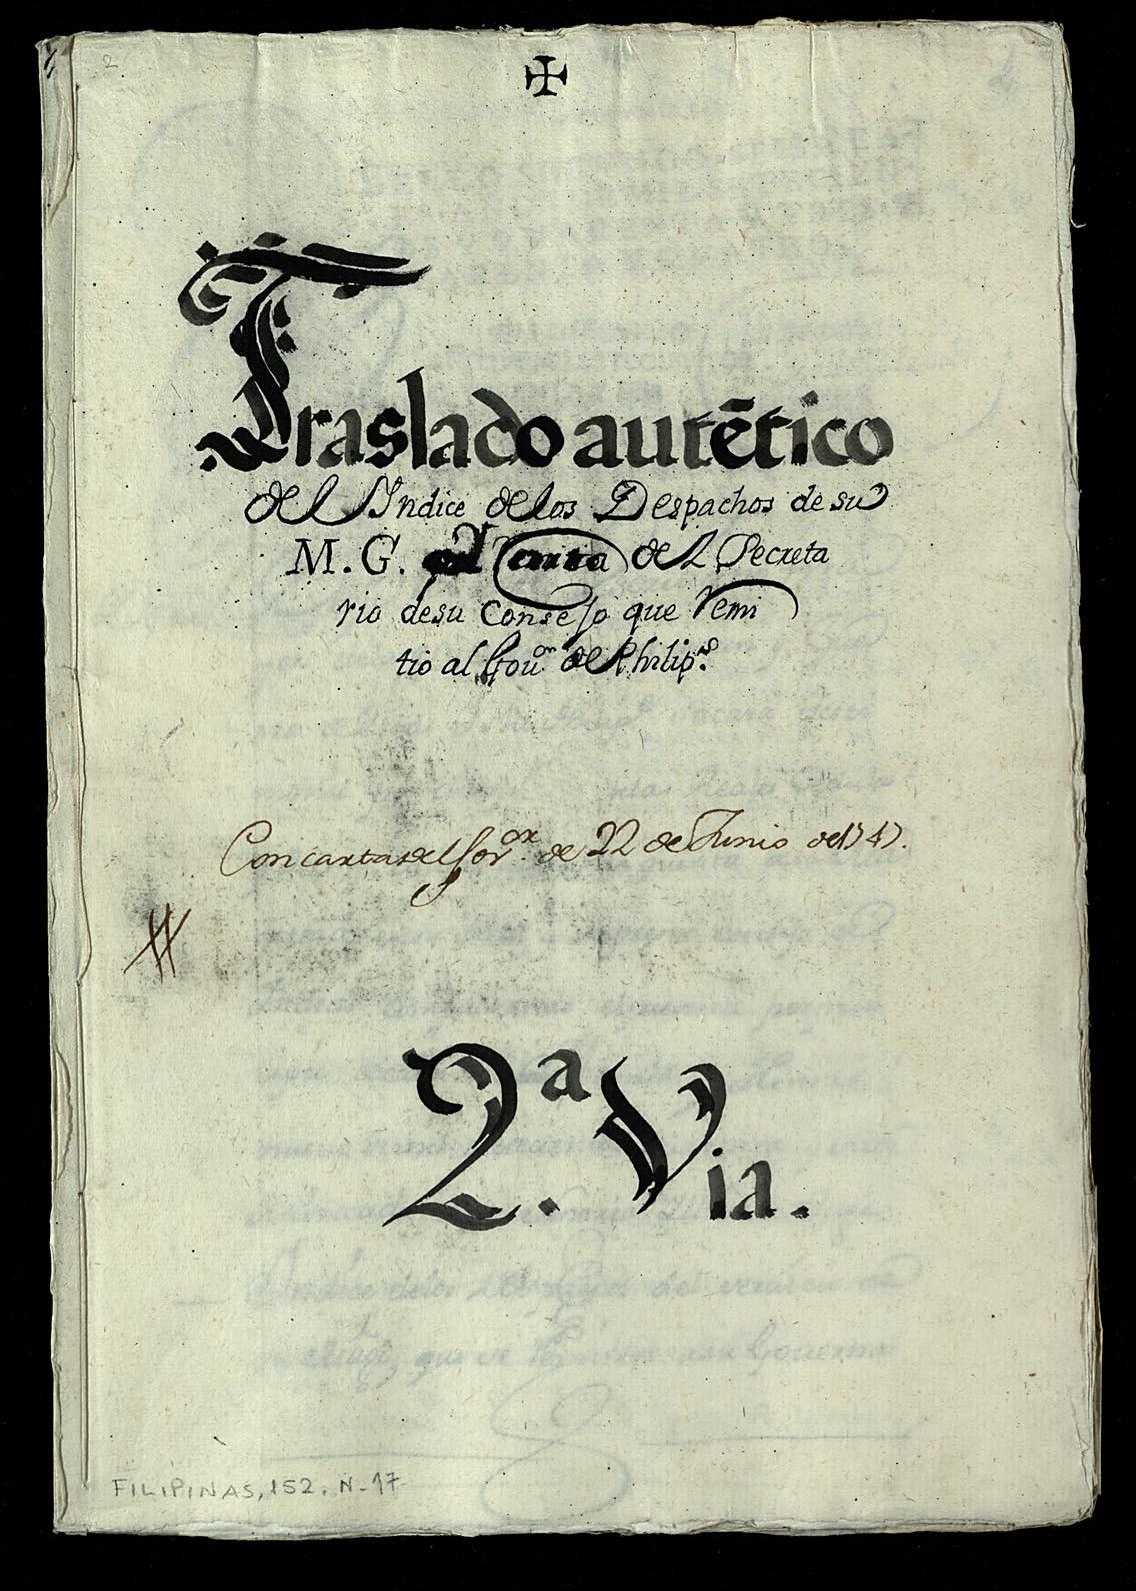 2
Traslado autẽtico
del Yndice de los Despachos de su
M. G. carta del Secreta
rio desu Consejo que remi
tio al Gouor. de Philipas.
Con carta del Govor. de 22 de Junio de 1747.
2a. Via.
FILIPINAS, 152. N-17